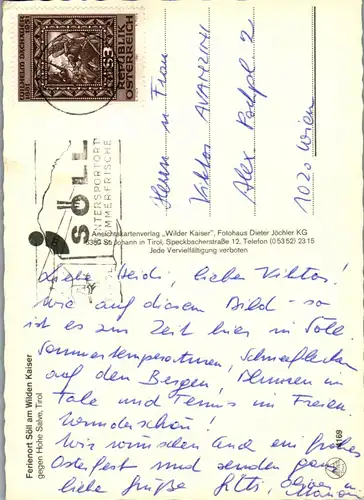 REPUBLIK
ÖSTERREICH
S 3
SÖLL
WINTERSPORTORT
SOMMERFRISCHE
Herrn u Frau
Viktor AVANZINI
Alex Pochpl 2
1020 Wien
Ansichtskartenverlag „Wilder Kaiser", Fotohaus Dieter Jöchler KG
6380 St. Johann in Tirol, Speckbacherstraße 12, Telefon (0 53 52) 23 15
Jede Vervielfältigung verboten
Ferienort Söll am Wilden Kaiser
gegen Hohe Salve, Tirol
Liebe Heidi, lieber Viktor!
Wie auf diesem Bild – so
ist es zur Zeit hier in Söll.
Sommertemperaturen, Schneeflecken
auf den Bergen, Blumen im
Tale und Tennis im Freien.
Wunderschön!
Wir wünschen Euch ein frohes
Osterfest und senden ganz
liebe Grüße
169